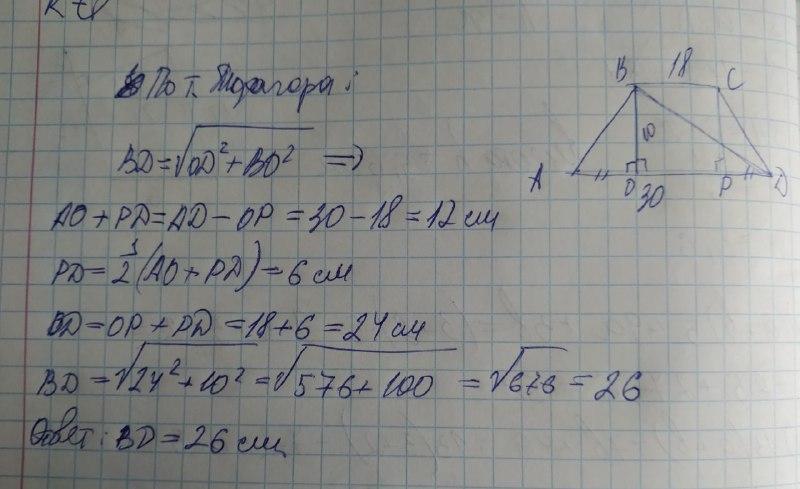 По т. Пифагора:
BD = √OD² + BO² ⇒
AO + PD = AD - OP = 30 - 18 = 12 см
PD = 1/2 (AO + PD) = 6 см
OD = OP + PD = 18 + 6 = 24 см
BD = √24² + 10² = √576 + 100 = √676 = 26
Ответ: BD = 26 см
B 18 C
10
A O P D
30